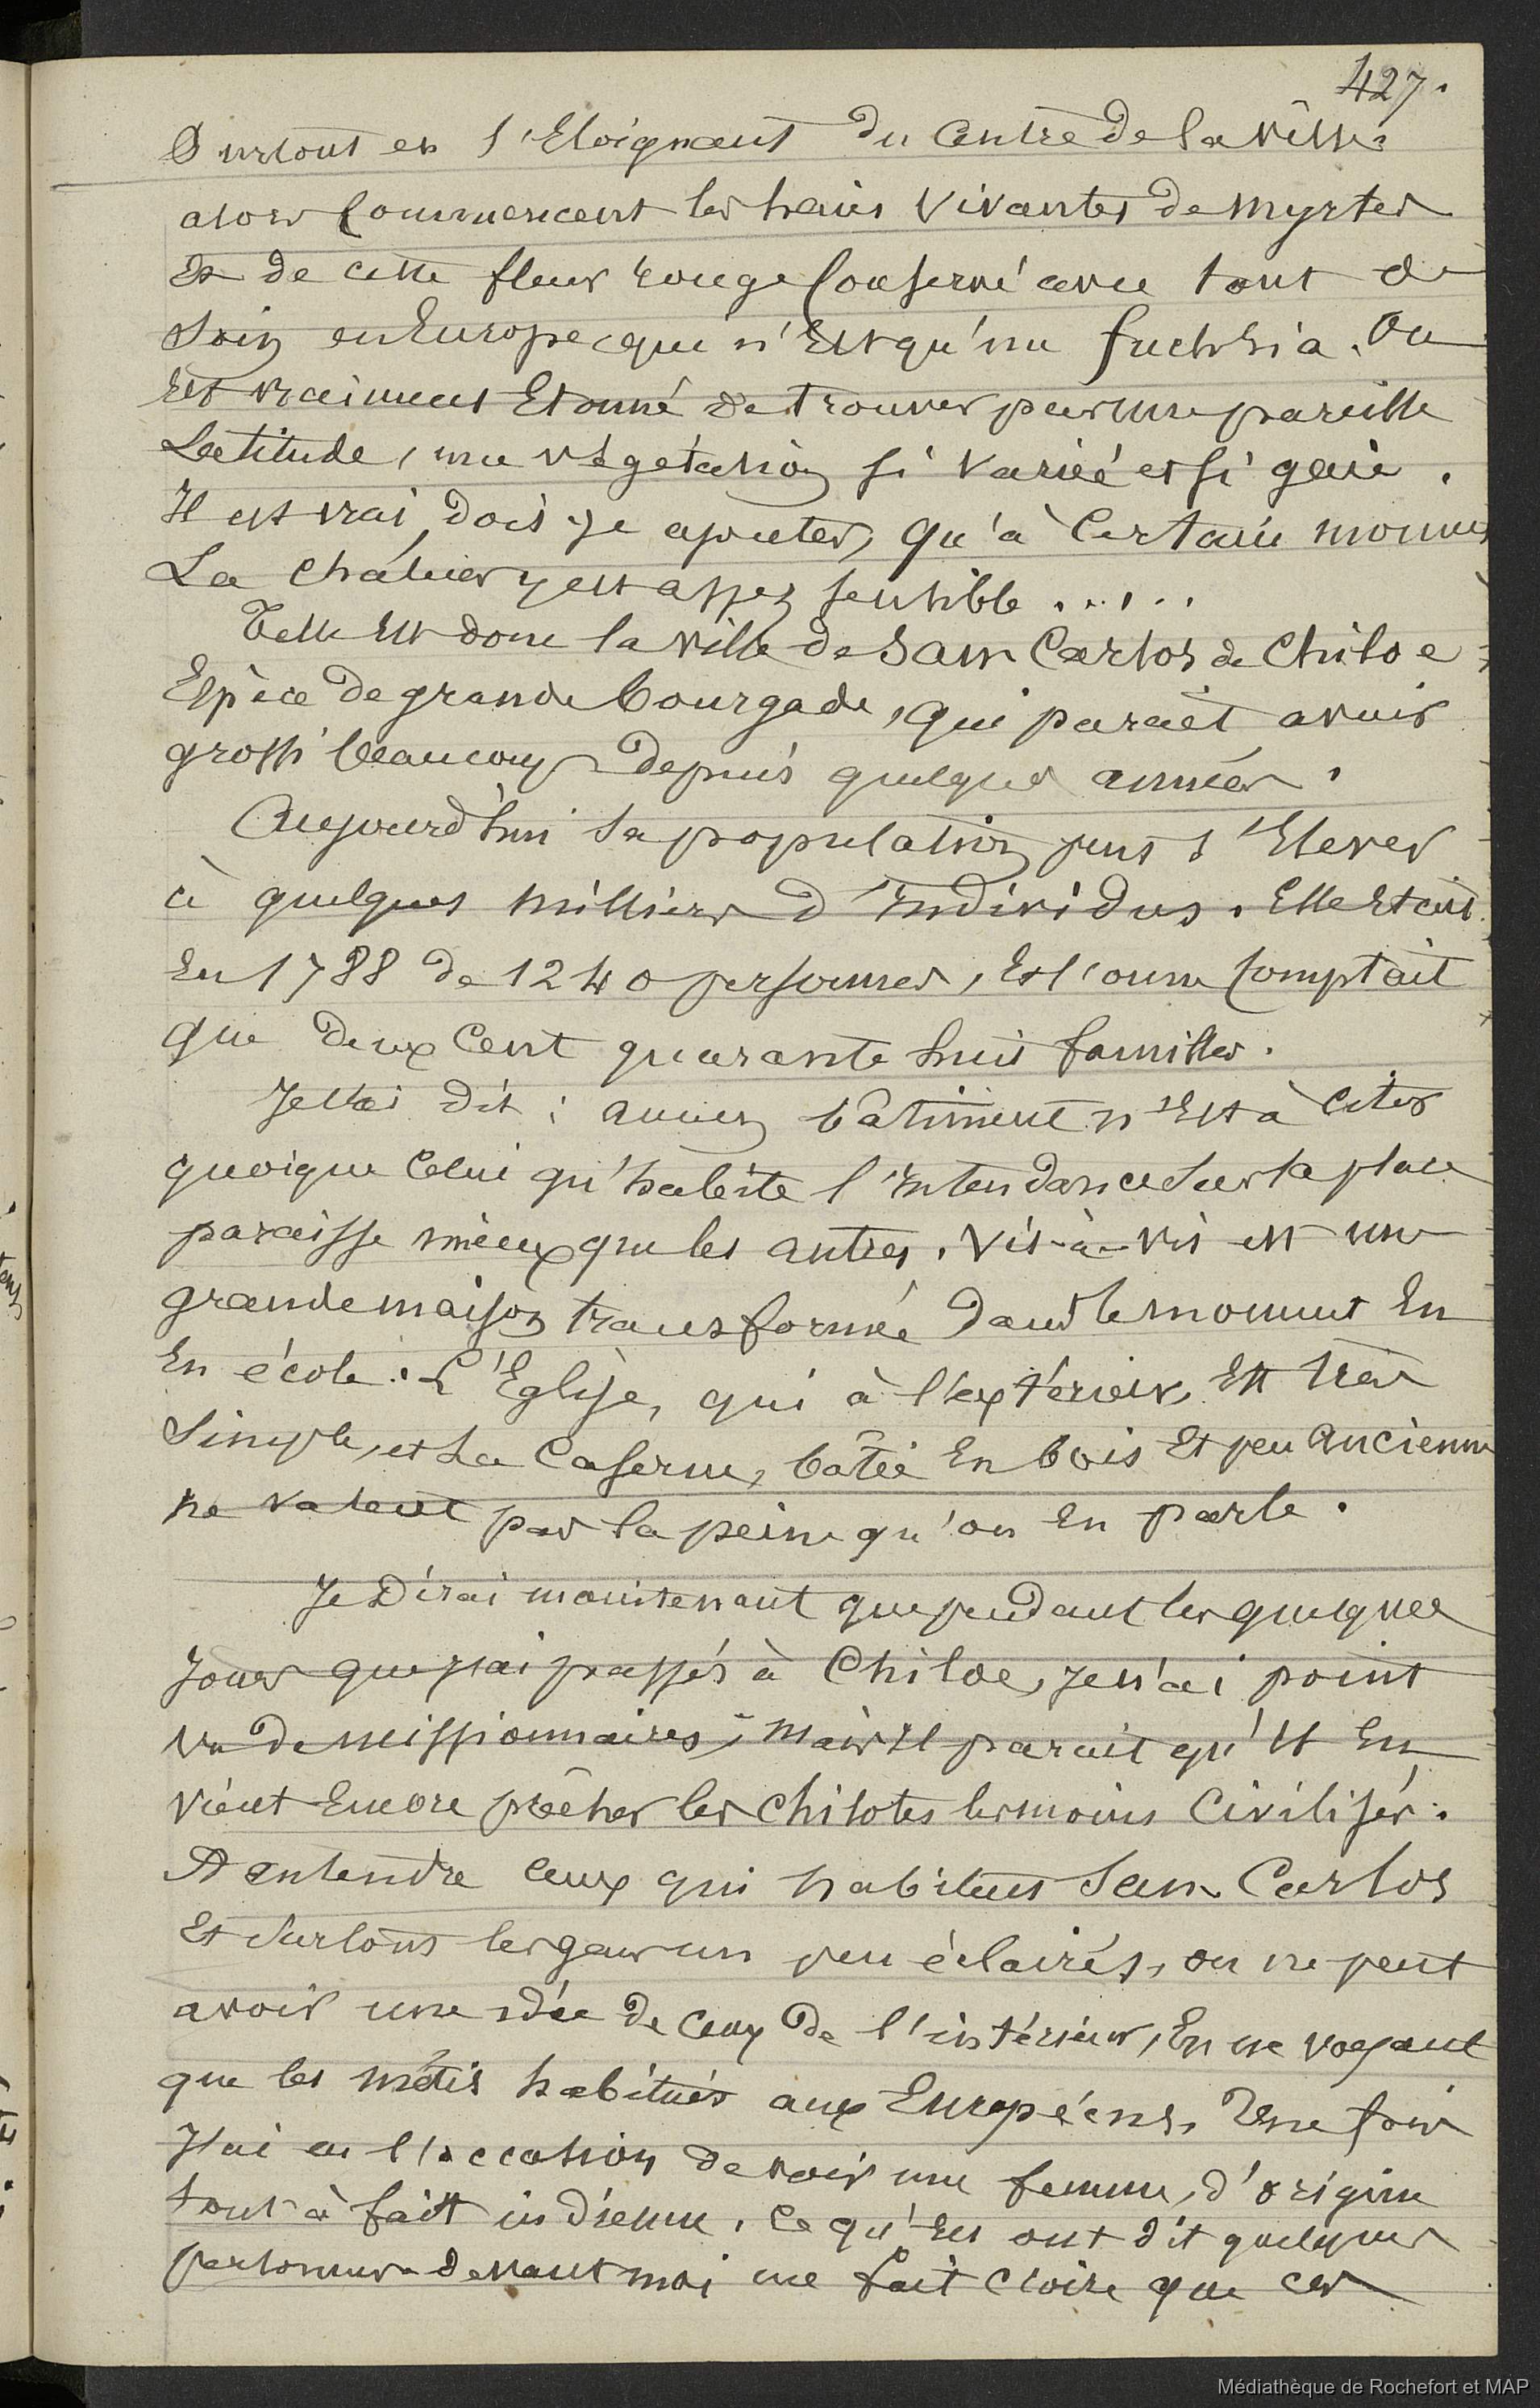 427.
Surtout en s'Eloignant du Centre de la ville.
alors Commencent les haies Vivantes de Myrtes
Et de cette fleur rouge Conservé avec tant de
Soin en Europe que n'Est qu'un fuchsia. On
Est vraiment Etonné de trouver par une pareille
Latitude, une végétation si variée et si gaie.
Il est vrai, dois-je ajouter, qu'à Certain moment
La chaleur y est assez sensible.....
Telle Est donc la ville de San Carlos de Chiloe
Espèce de grande bourgade, qui parait avoir
grossi beaucoup depuis quelques années.
Aujourd'hui sa population peut s'Elever
à quelques milliers d'individus. Elle Etait
En 1788 de 1240 personnes, Et l'on ne Comptait
que deux Cent quarante huit familles.
Je l'ai dit : aucun bâtiment n'Est à Citer
quoique Celui qu'habite l'intendance sur la place
paraisse mieux que les autres. Vis-à-vis est une
grande maison transformée dans le moment En
En école. L'Eglise, qui à l'extérieur, Est très
Simple, et La Caserne, bâtie En bois Et peu ancienne
ne valent pas la peine qu'on En parle.
Je Dirai maintenant que pendant les quelques
Jours que j'ai passés à Chiloe, je n'ai point
vu de missionnaires ; Mais Il parait qu'Il En
vient Encore prêcher les Chilotes les moins Civilisés.
A entendre Ceux qui habitent San Carlos
Et Surtout les gens un peu éclairés, on ne peut
avoir une idée de Ceux de l'intérieur, En ne voyant
que les métis habitués aux Européens. Une fois
J'ai eu l'occasion de voir une femme, d'origine
tout à fait indienne. Ce qu'En ont dit quelques
personnes devant moi me fait croire que ces
Médiathèque de Rochefort et MAP